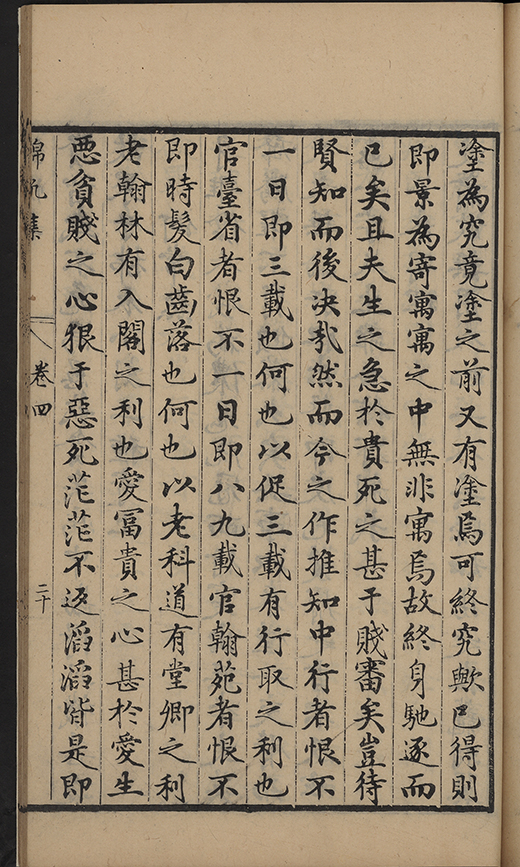 塗為究竟塗之前又有塗焉可終究歟已得則
即景為寄寓寓之中無非寓焉故終身馳逐而
已矣且夫生之急於貴死之甚于賤審矣豈待
賢知而後决㢤然而今之作推知中行者恨不
一日即三載也何也以促三載有行取之利也
官臺省者恨不一日即八九載官翰苑者恨不
即時髮白齒落也何也以老科道有堂卿之利
老翰林有入閣之利也愛冨貴之心甚於愛生
惡貧賤之心狠于惡死茫茫不返滔滔皆是即
錦帆集
卷四
二十